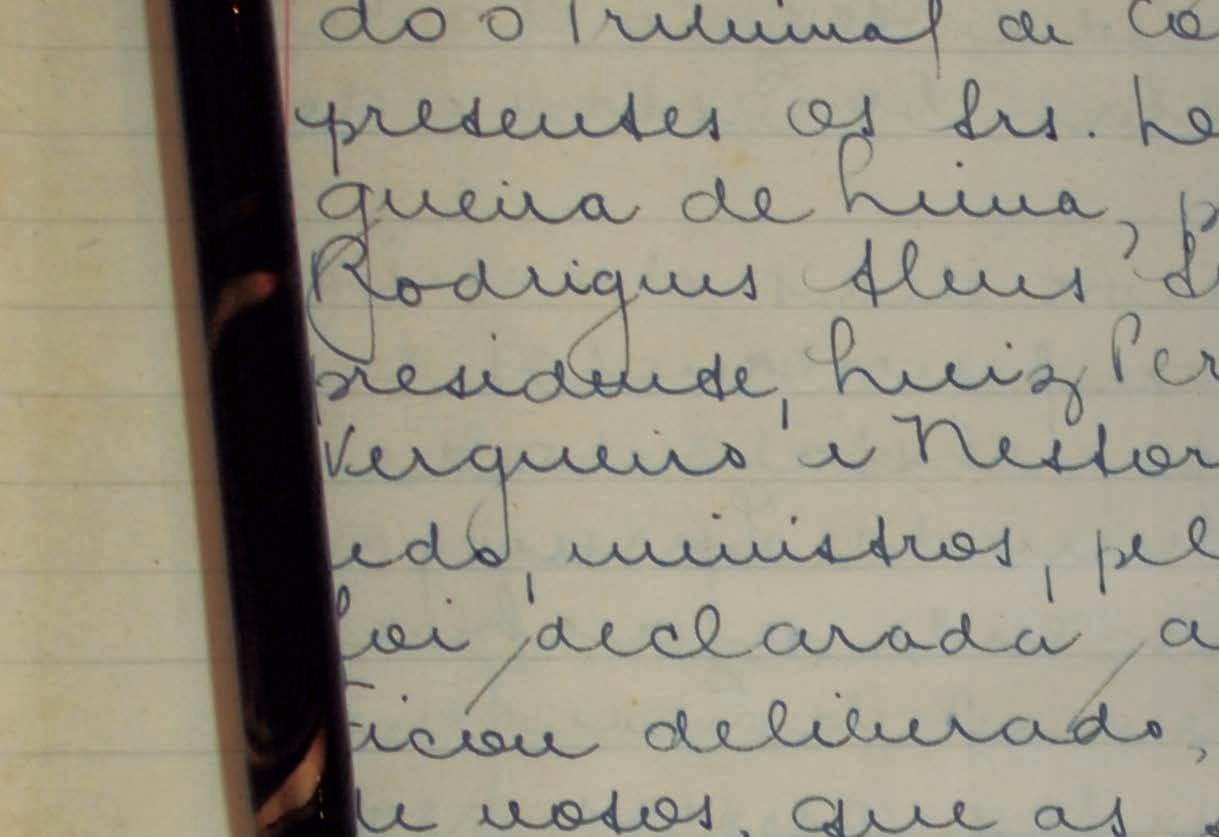 do o Tribunal de Co
presentes os Srs. Lo
gueira de Lima, p
Rodrigues Alves S
presidente, Luiz Per
Vergueiro e Nestor
edo, ministros, pel
foi declarada a
Ficou deliberado,
de votos, que as